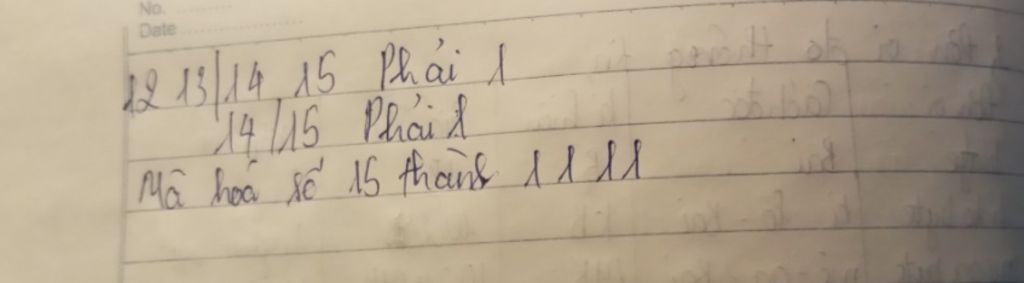 No.
Date
12 13|14 15 Phải 1
14/15 Phải 1
Mã hoá số 15 thành 1 1 1 1